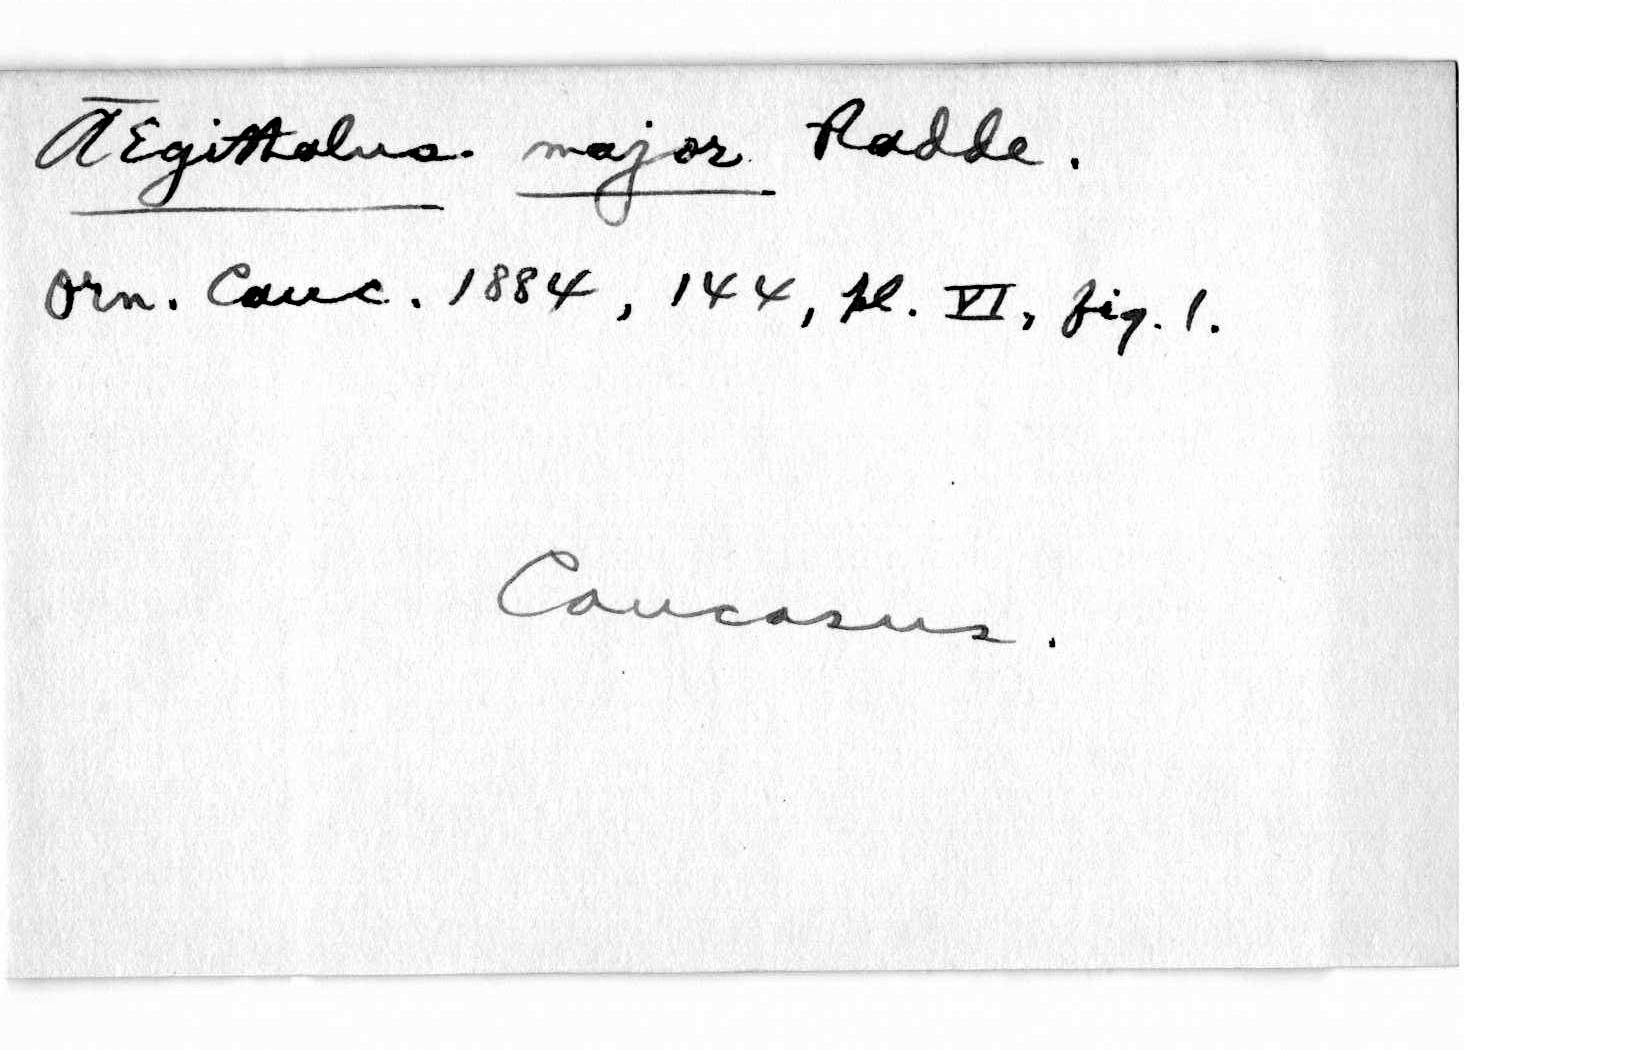 Ægithalus major Radde.
Orn. Cauc. 1884, 144, pl. VI, fig. 1.
Caucasus.